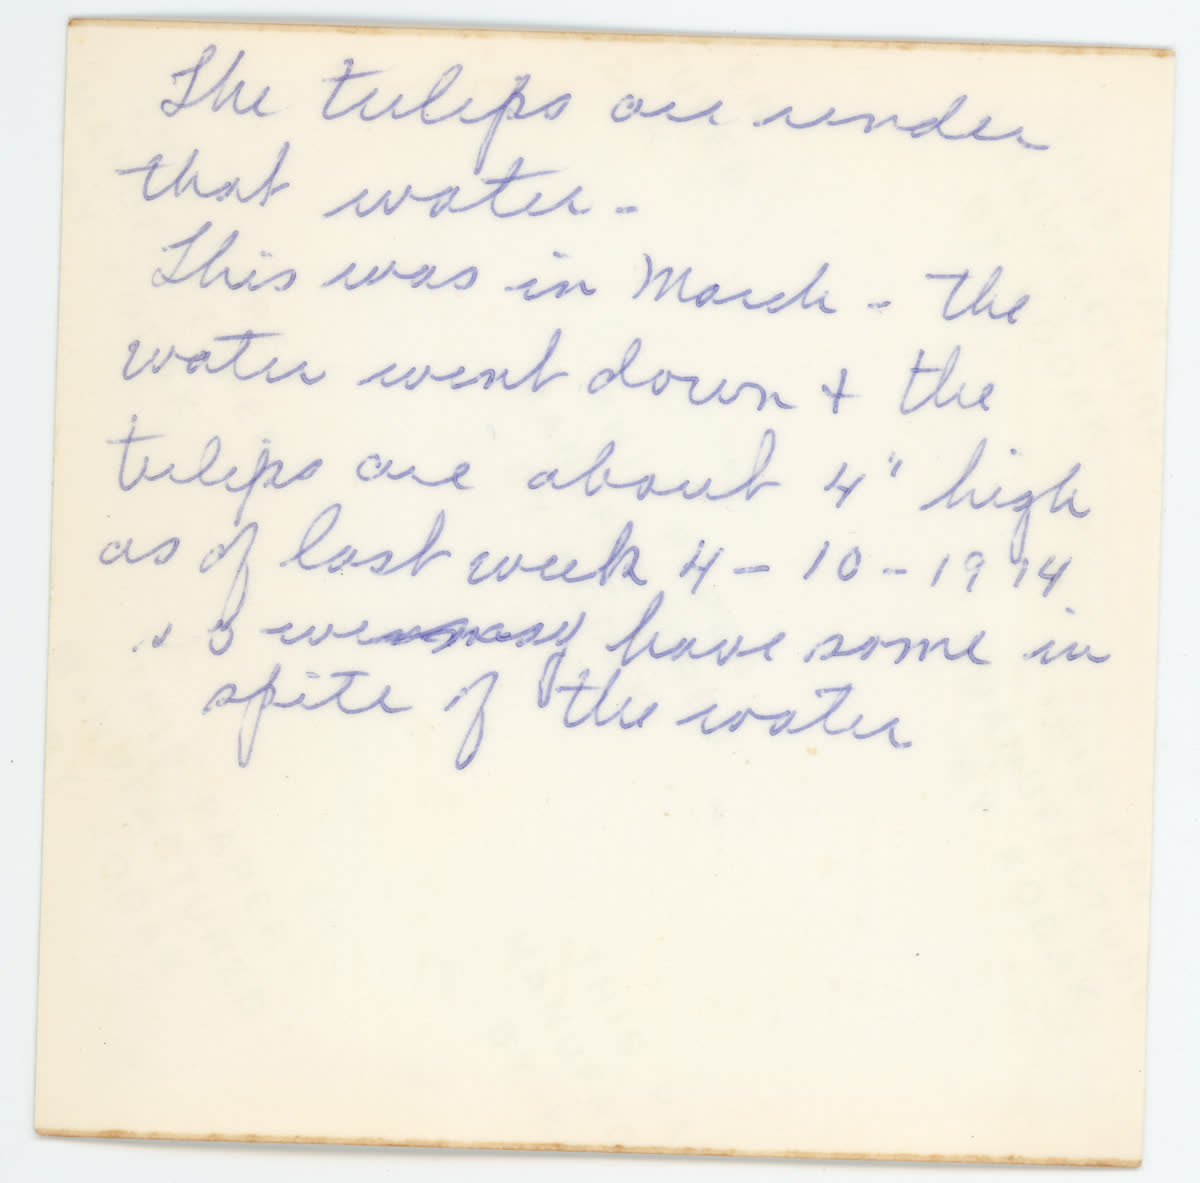 The tulips are under
that water -
This was in March - the
water went down + the
tulips are about 4" high
as of last week 4-10-1974
so we may have some in
spite of the water